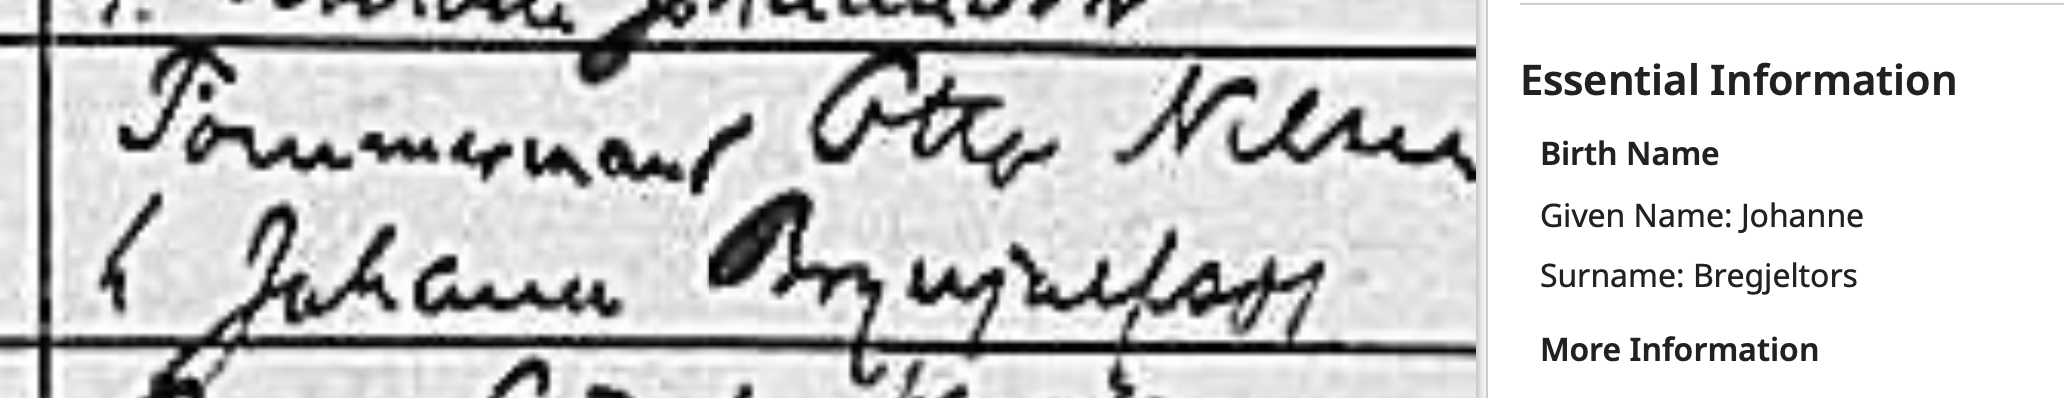 Tömmermand Otto Nilsen
h Johanne
Essential Information
Birth Name
Given Name: Johanne
Surname: Bregjeltors
More Information